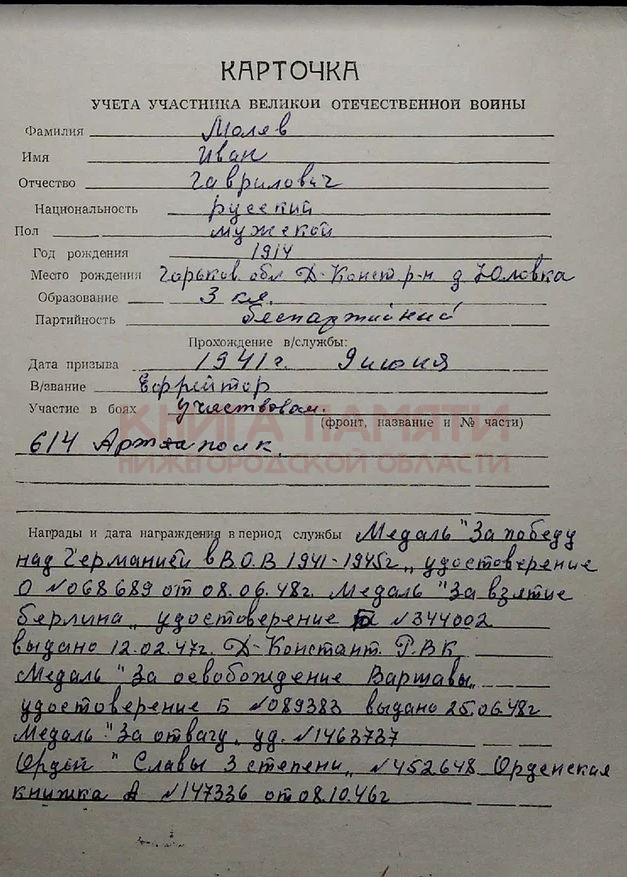 КАРТОЧКА
УЧЕТА УЧАСТНИКА ВЕЛИКОЙ ОТЕЧЕСТВЕННОЙ ВОИНЫ
Фамилия Моляв
Имя Иван
Отчество Гаврилович
Национальность русский
Пол мужской
Год рождения 1914
Место рождения Горьков. обл Д-Конст р-н д. Юловка
Образование 3 кл.
Партийность беспартийный
Прохождение в/службы:
Дата призыва 1941г. 9 июня
В/звание Ефрейтор
Участие в боях участвовал.
(фронт, название и № части)
КНИГА ПАМЯТИ
614 Артполк.
НИЖЕГОРОДСКОЙ ОБЛАСТИ
Награды и дата награждения в период службы Медаль "За победу
над Германией в В.О.В 1941-1945г„ удостоверение
О №068689 от 08.06.48г. Медаль "За взятие
берлина„ удостоверение №344002
выдано 12.02.47г. Д-Констант. Р.В.К
Медаль "За освобождение Варшавы„
удостоверение Б №089383 выдано 25.06.48г
Медаль "За отвагу„ уд. №1463737
Орден " Славы 3 степени„ №452648 Орденская
книжка А №147336 от 08.10.46г